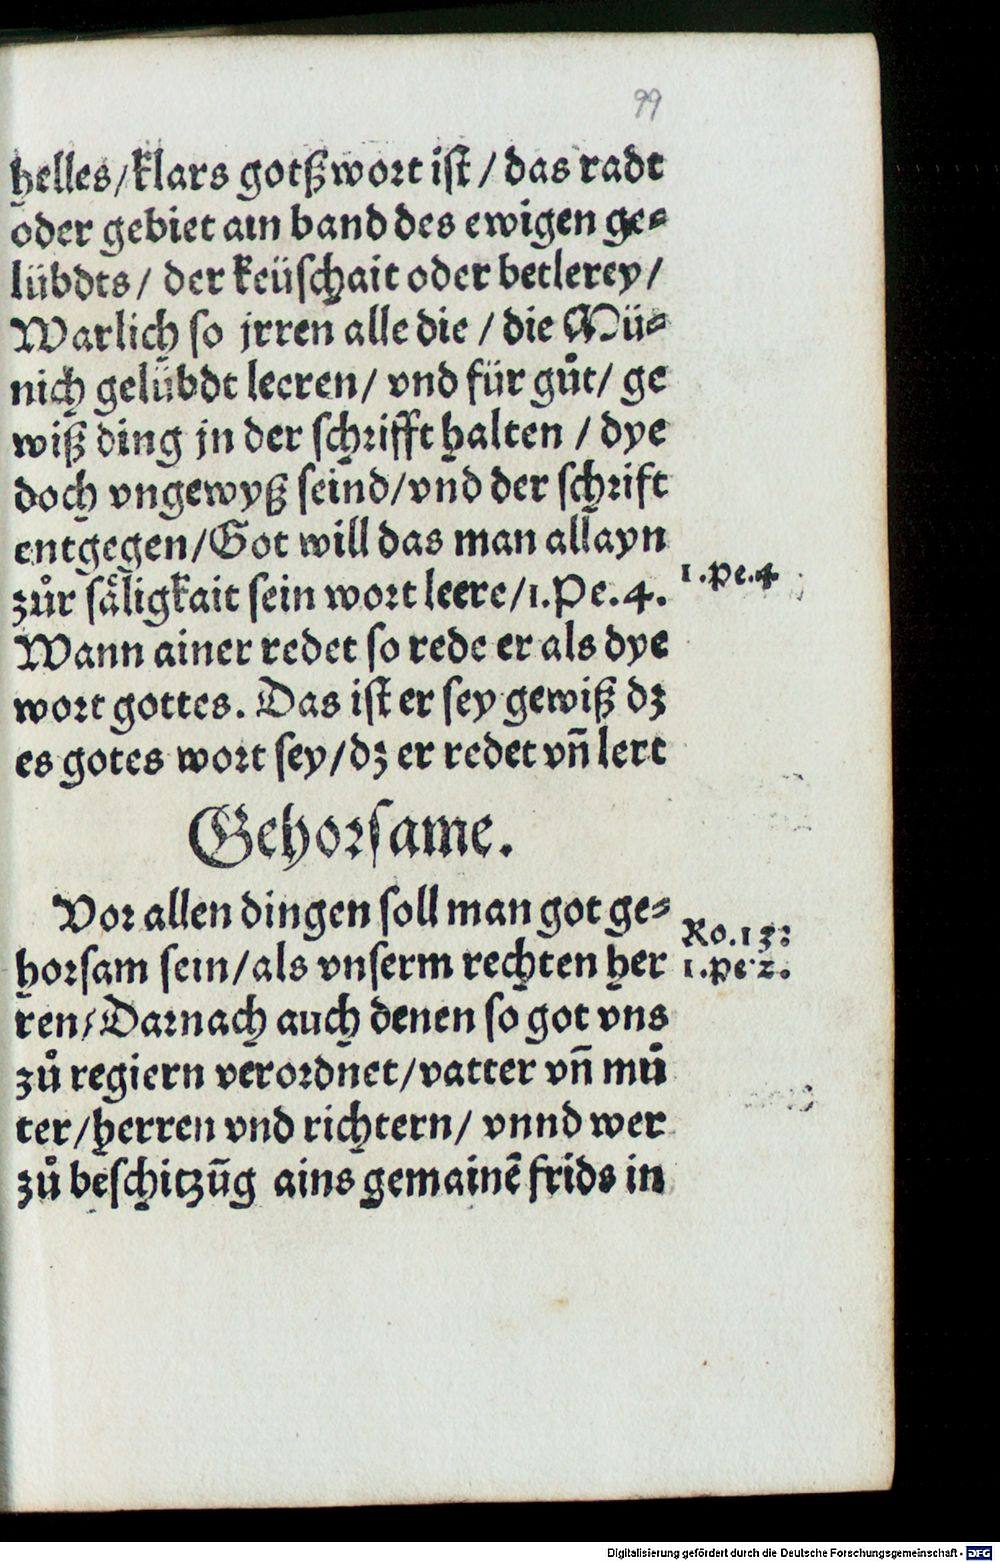 99
helles/klars gotßwort ist/das radt
oder gebiet ain band des ewigen ge⸗
lübdts/ der keüschait oder betlerey/
Warlich so jrren alle die / die Mü⸗
nich gelübdt leeren/ vnd für gůt/ ge
wiß ding jn der schrifft halten / dye
doch vngewyß seind/vnd der schrift
entgegen/Got will das man allayn
zůr säligkait sein wort leere/1.Pe.4.
1.pe.4
Wann ainer redet so rede er als dye
wort gottes. Das ist er sey gewiß dz
es gotes wort sey/dz er redet vñ lert
Gehorsame.
Vor allen dingen soll man got ge⸗
Ro.13:
horsam sein/als vnserm rechten her
1.pe.2.
ren/Darnach auch denen so got vns
zů regiern verordnet/vatter vñ mů
ter/herren vnd richtern/ vnnd wer
zů beschitzũg ains gemainẽ frids in
Digitalisierung gefördert durch die Deutsche Forschungsgemeinschaft - DFG